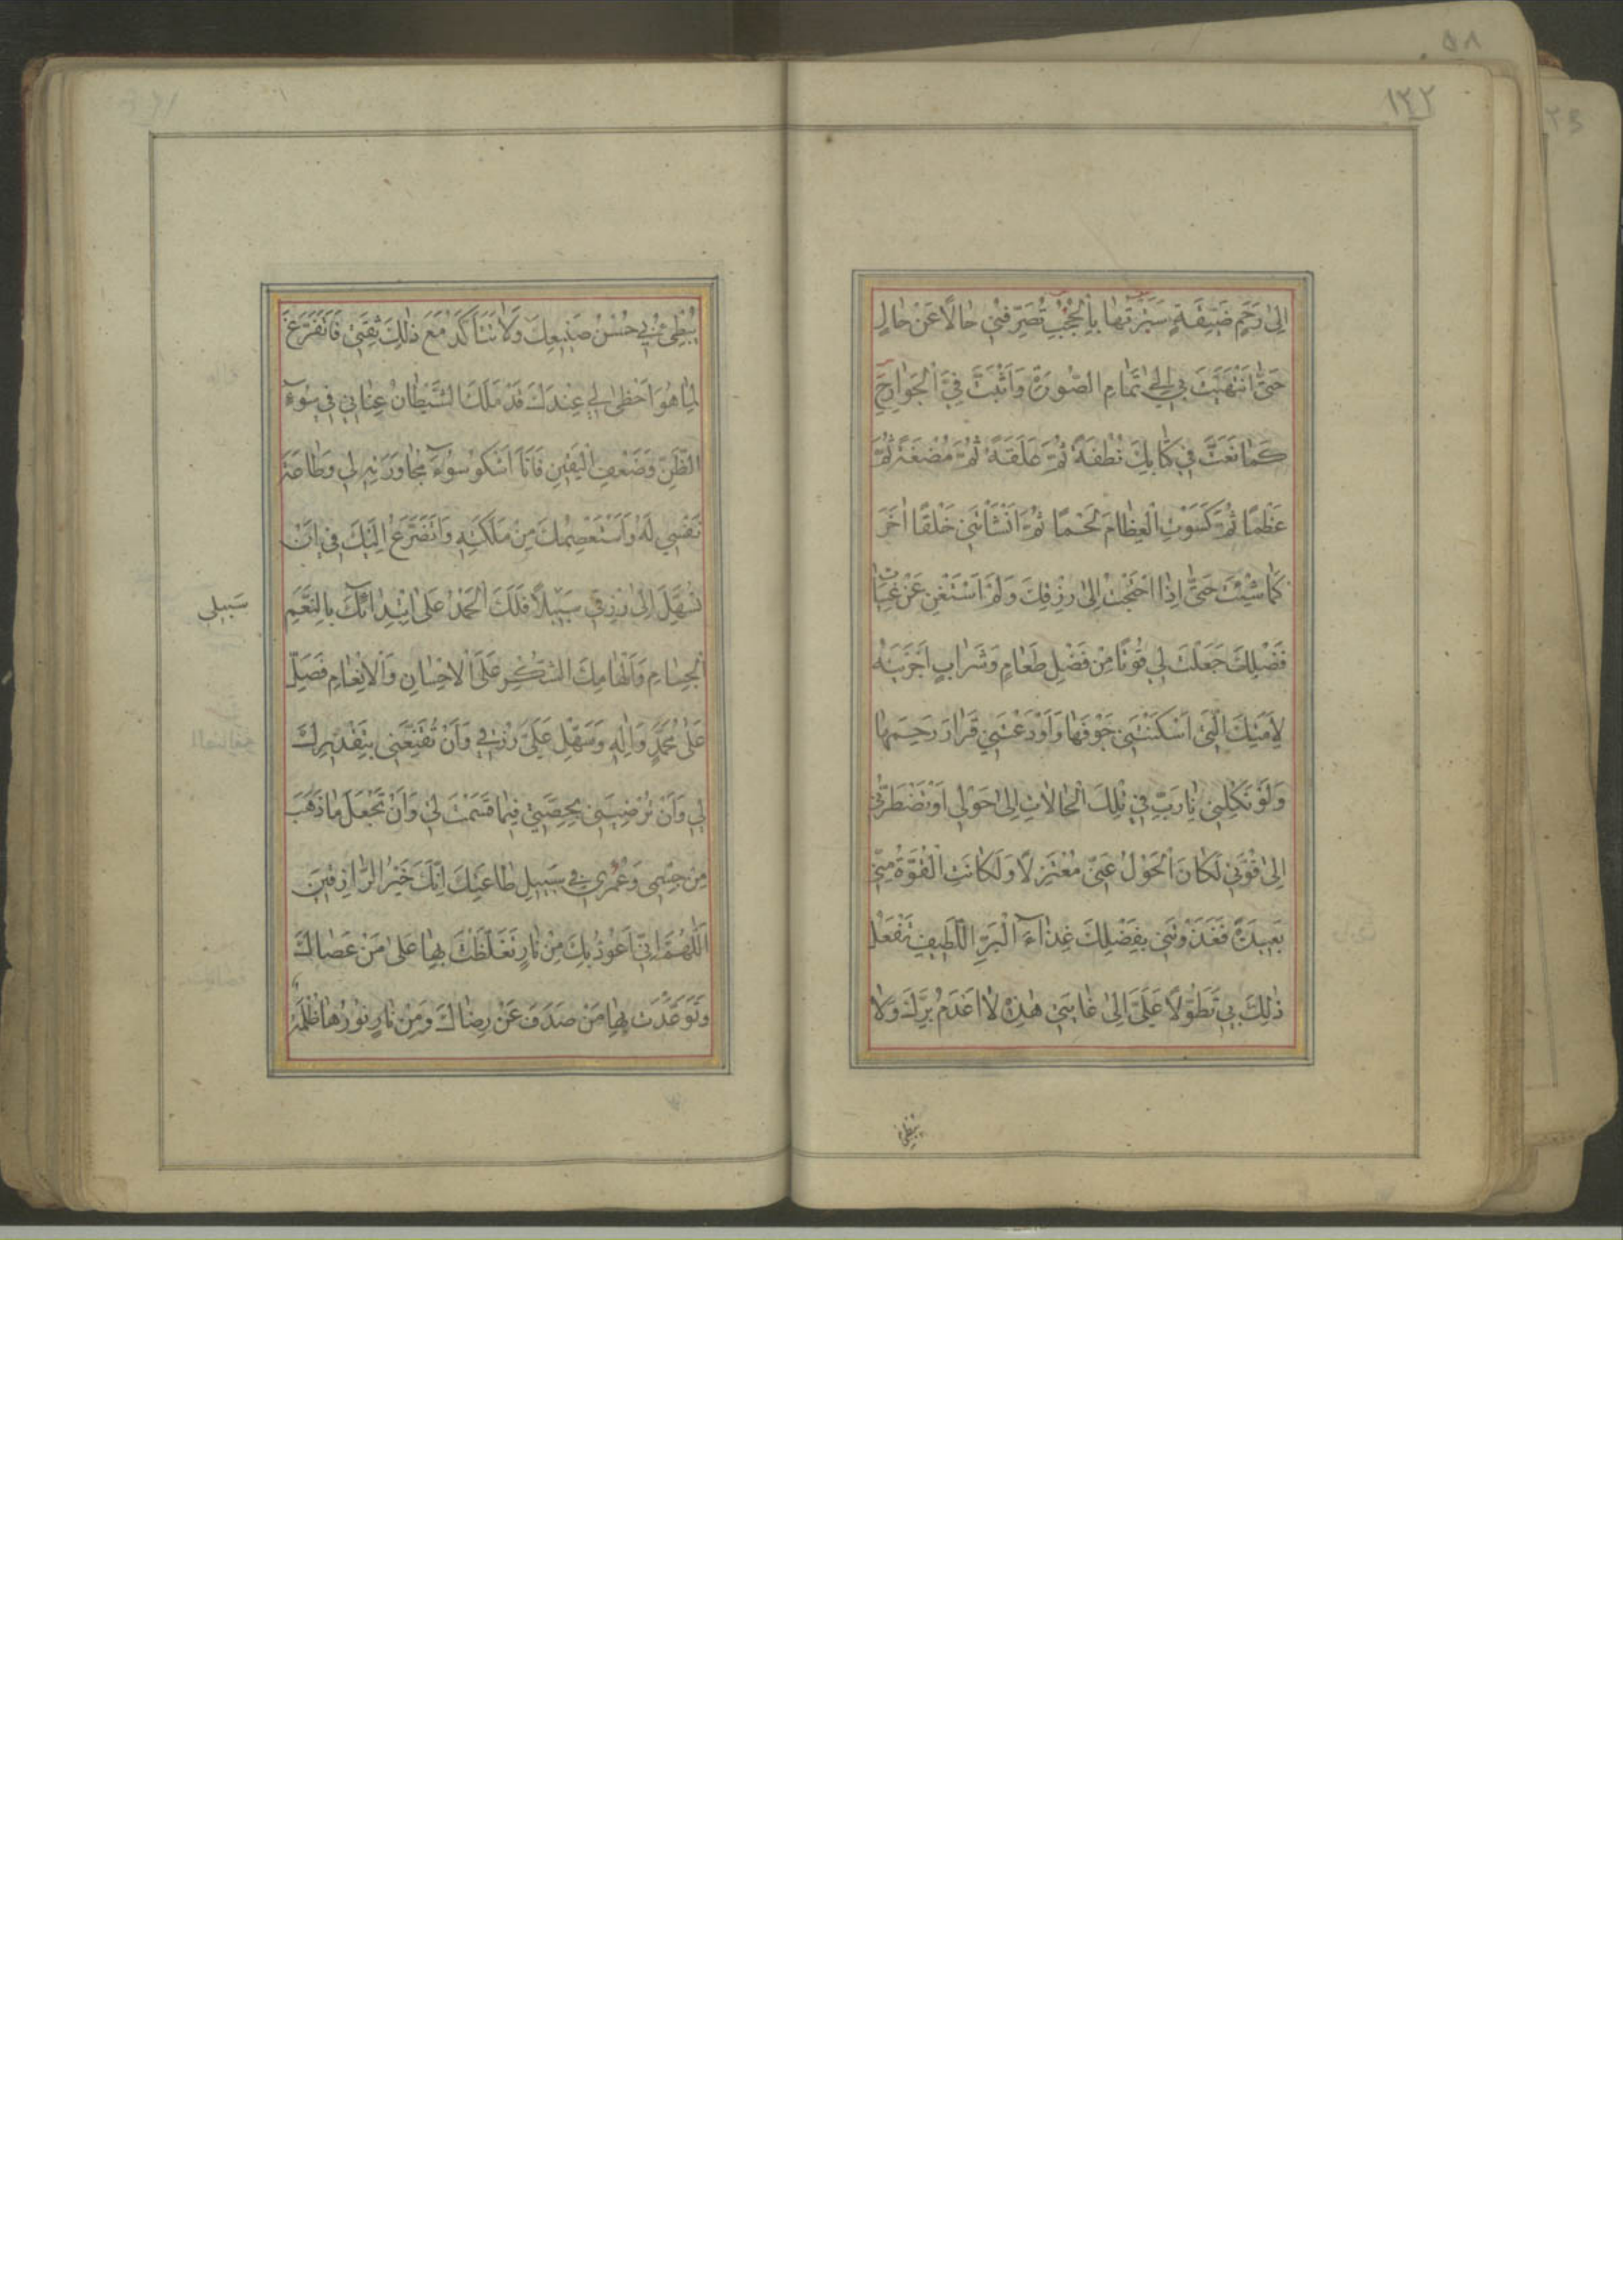 ١٣٢
٥٨
اِلىٰ رَحِمٍ ضَيِّقَةٍ سَتَرْتَهٰا بِالْحُجُبِ تُصَرِّفُنِي حٰالًا عَنْ حٰالٍ
حَتّىٰ انْتَهَيْتَ بِي اِلىٰ تَمٰامِ الصُّورَةِ وَاَثْبَتَّ فِيَّ الْجَوٰارِحَ
كَمٰا نَعَتَّ فِي كِتٰابِكَ نُطْفَةً ثُمَّ عَلَقَةً ثُمَّ مُضْغَةً ثُمَّ
عَظْمًا ثُمَّ كَسَوْتَ الْعِظٰامَ لَحْمًا ثُمَّ اَنْشَأْتَنِي خَلْقًا اٰخَرَ
كَمٰا شِئْتَ حَتّىٰ اِذَا احْتَجْتُ اِلىٰ رِزْقِكَ وَلَمْ اَسْتَغْنِ عَنْ غِيٰاثِ
فَضْلِكَ جَعَلْتَ لِي قُوتًا مِنْ فَضْلِ طَعٰامٍ وَشَرٰابٍ اَجْرَيْتَهُ
لِاَمَتِكَ الَّتِي اَسْكَنْتَنِي جَوْفَهٰا وَاَوْدَعْتَنِي قَرٰارَ رَحِمِهٰا
وَلَوْ تَكِلْنِي يٰا رَبِّ فِي تِلْكَ الْحٰالاٰتِ اِلىٰ حَوْلِي اَوْ تَضْطَرُّنِي
اِلىٰ قُوَّتِي لَكٰانَ الْحَوْلُ عَنِّي مُعْتَزِلًا وَلَكٰانَتِ الْقُوَّةُ مِنِّي
بَعِيدَةً فَغَذَوْتَنِي بِفَضْلِكَ غِذٰاءَ الْبَرِّ اللَّطِيفِ تَفْعَلُ
ذٰلِكَ بِي تَطَوُّلًا عَلَيَّ اِلىٰ غٰايَتِي هٰذِهِ لاٰ اَعْدَمُ بِرَّكَ وَلاٰ
يُبْطِئُ
يُبْطِئُ بِي حُسْنُ صَنِيعِكَ وَلاٰ تَتَأَكَّدُ مَعَ ذٰلِكَ ثِقَتِي فَاَتَفَرَّغَ
لِمٰا هُوَ اَحْظىٰ لِي عِنْدَكَ قَدْ مَلَكَ الشَّيْطٰانُ عِنٰانِي فِي سُوءِ
الظَّنِّ وَضَعْفِ الْيَقِينِ فَاَنَا اَشْكُو سُوءَ مُجٰاوَرَتِهِ لِي وَطٰاعَةَ
نَفْسِي لَهُ وَاَسْتَعْصِمُكَ مِنْ مَلَكَتِهِ وَاَتَضَرَّعُ اِلَيْكَ فِي اَنْ
تُسَهِّلَ اِلىٰ رِزْقِي سَبِيلًا فَلَكَ الْحَمْدُ عَلَى ابْتِدٰائِكَ بِالنِّعَمِ
سَبِيلِي
الْجِسٰامِ وَاِلْهٰامِكَ الشُّكْرَ عَلَى الْاِحْسٰانِ وَالْاِنْعٰامِ فَصَلِّ
عَلىٰ مُحَمَّدٍ وَاٰلِهِ وَسَهِّلْ عَلَيَّ رِزْقِي وَاَنْ تُقَنِّعَنِي بِتَقْدِيرِكَ
لِي وَاَنْ تُرْضِيَنِي بِحِصَّتِي فِيمٰا قَسَمْتَ لِي وَاَنْ تَجْعَلَ مٰا ذَهَبَ
مِنْ جِسْمِي وَعُمْرِي فِي سَبِيلِ طٰاعَتِكَ اِنَّكَ خَيْرُ الرّٰازِقِينَ
اَللّٰهُمَّ اِنِّي اَعُوذُ بِكَ مِنْ نٰارٍ تَغَلَّظْتَ بِهٰا عَلىٰ مَنْ عَصٰاكَ
وَتَوَعَّدْتَ بِهٰا مَنْ صَدَفَ عَنْ رِضٰاكَ وَمِنْ نٰارٍ نُورُهٰا ظُلْمَةٌ